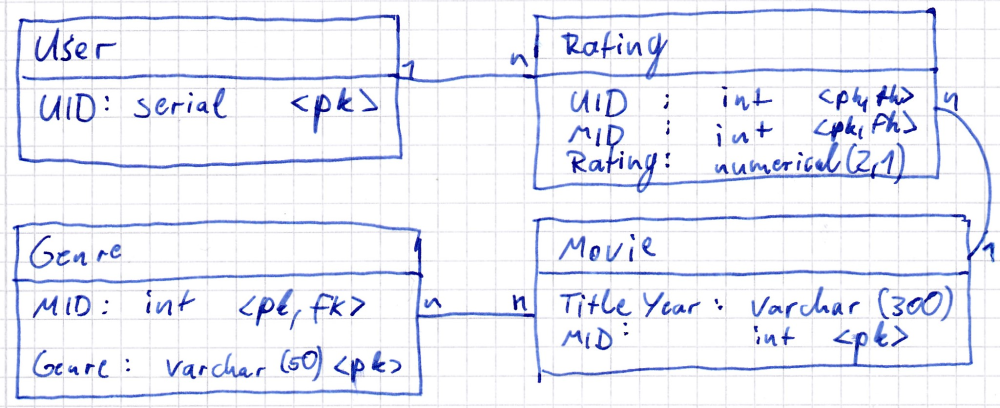 User
UID: serial <pk>
1 n
Rating
UID : int <pk, fk>
MID : int <pk, fk>
Rating: numerical (2,1)
n
1
Genre
MID: int <pk, fk>
Genre: varchar (50) <pk>
n n
Movie
Title Year: varchar (300)
MID: int <pk>